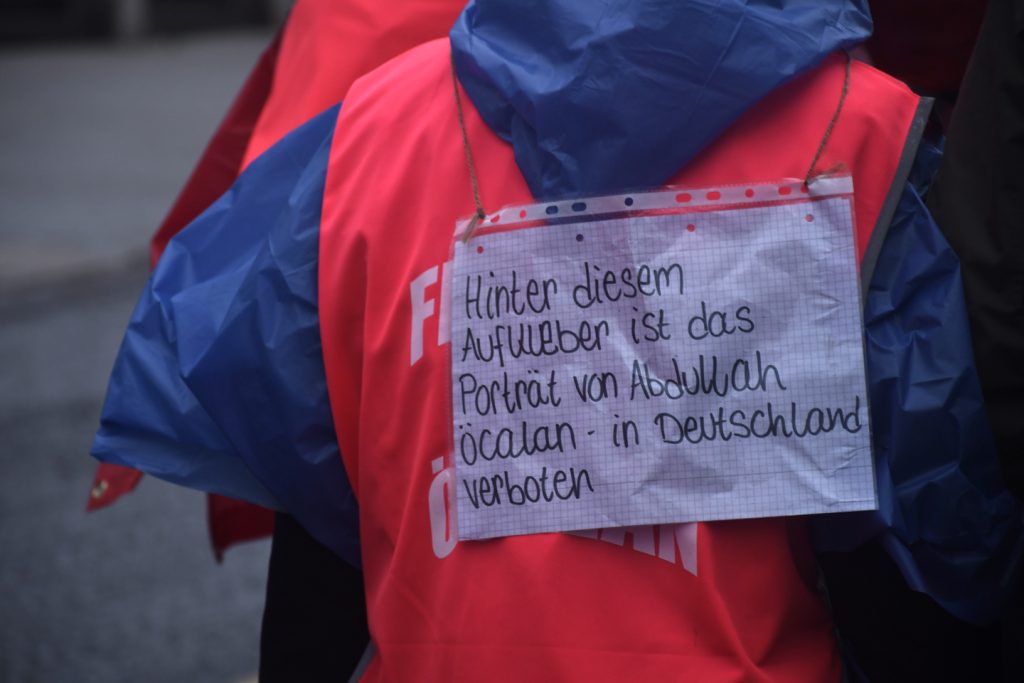 F
Hinter diesem
Aufkleber ist das
Porträt von Abdullah
Öcalan - in Deutschland
verboten
Ö AN